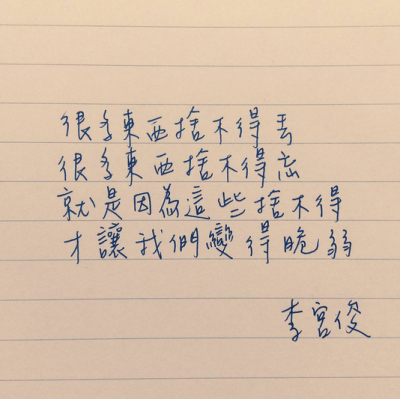 很多東西捨不得丟
很多東西捨不得忘
就是因為這些捨不得
才讓我們變得脆弱
李宮俊